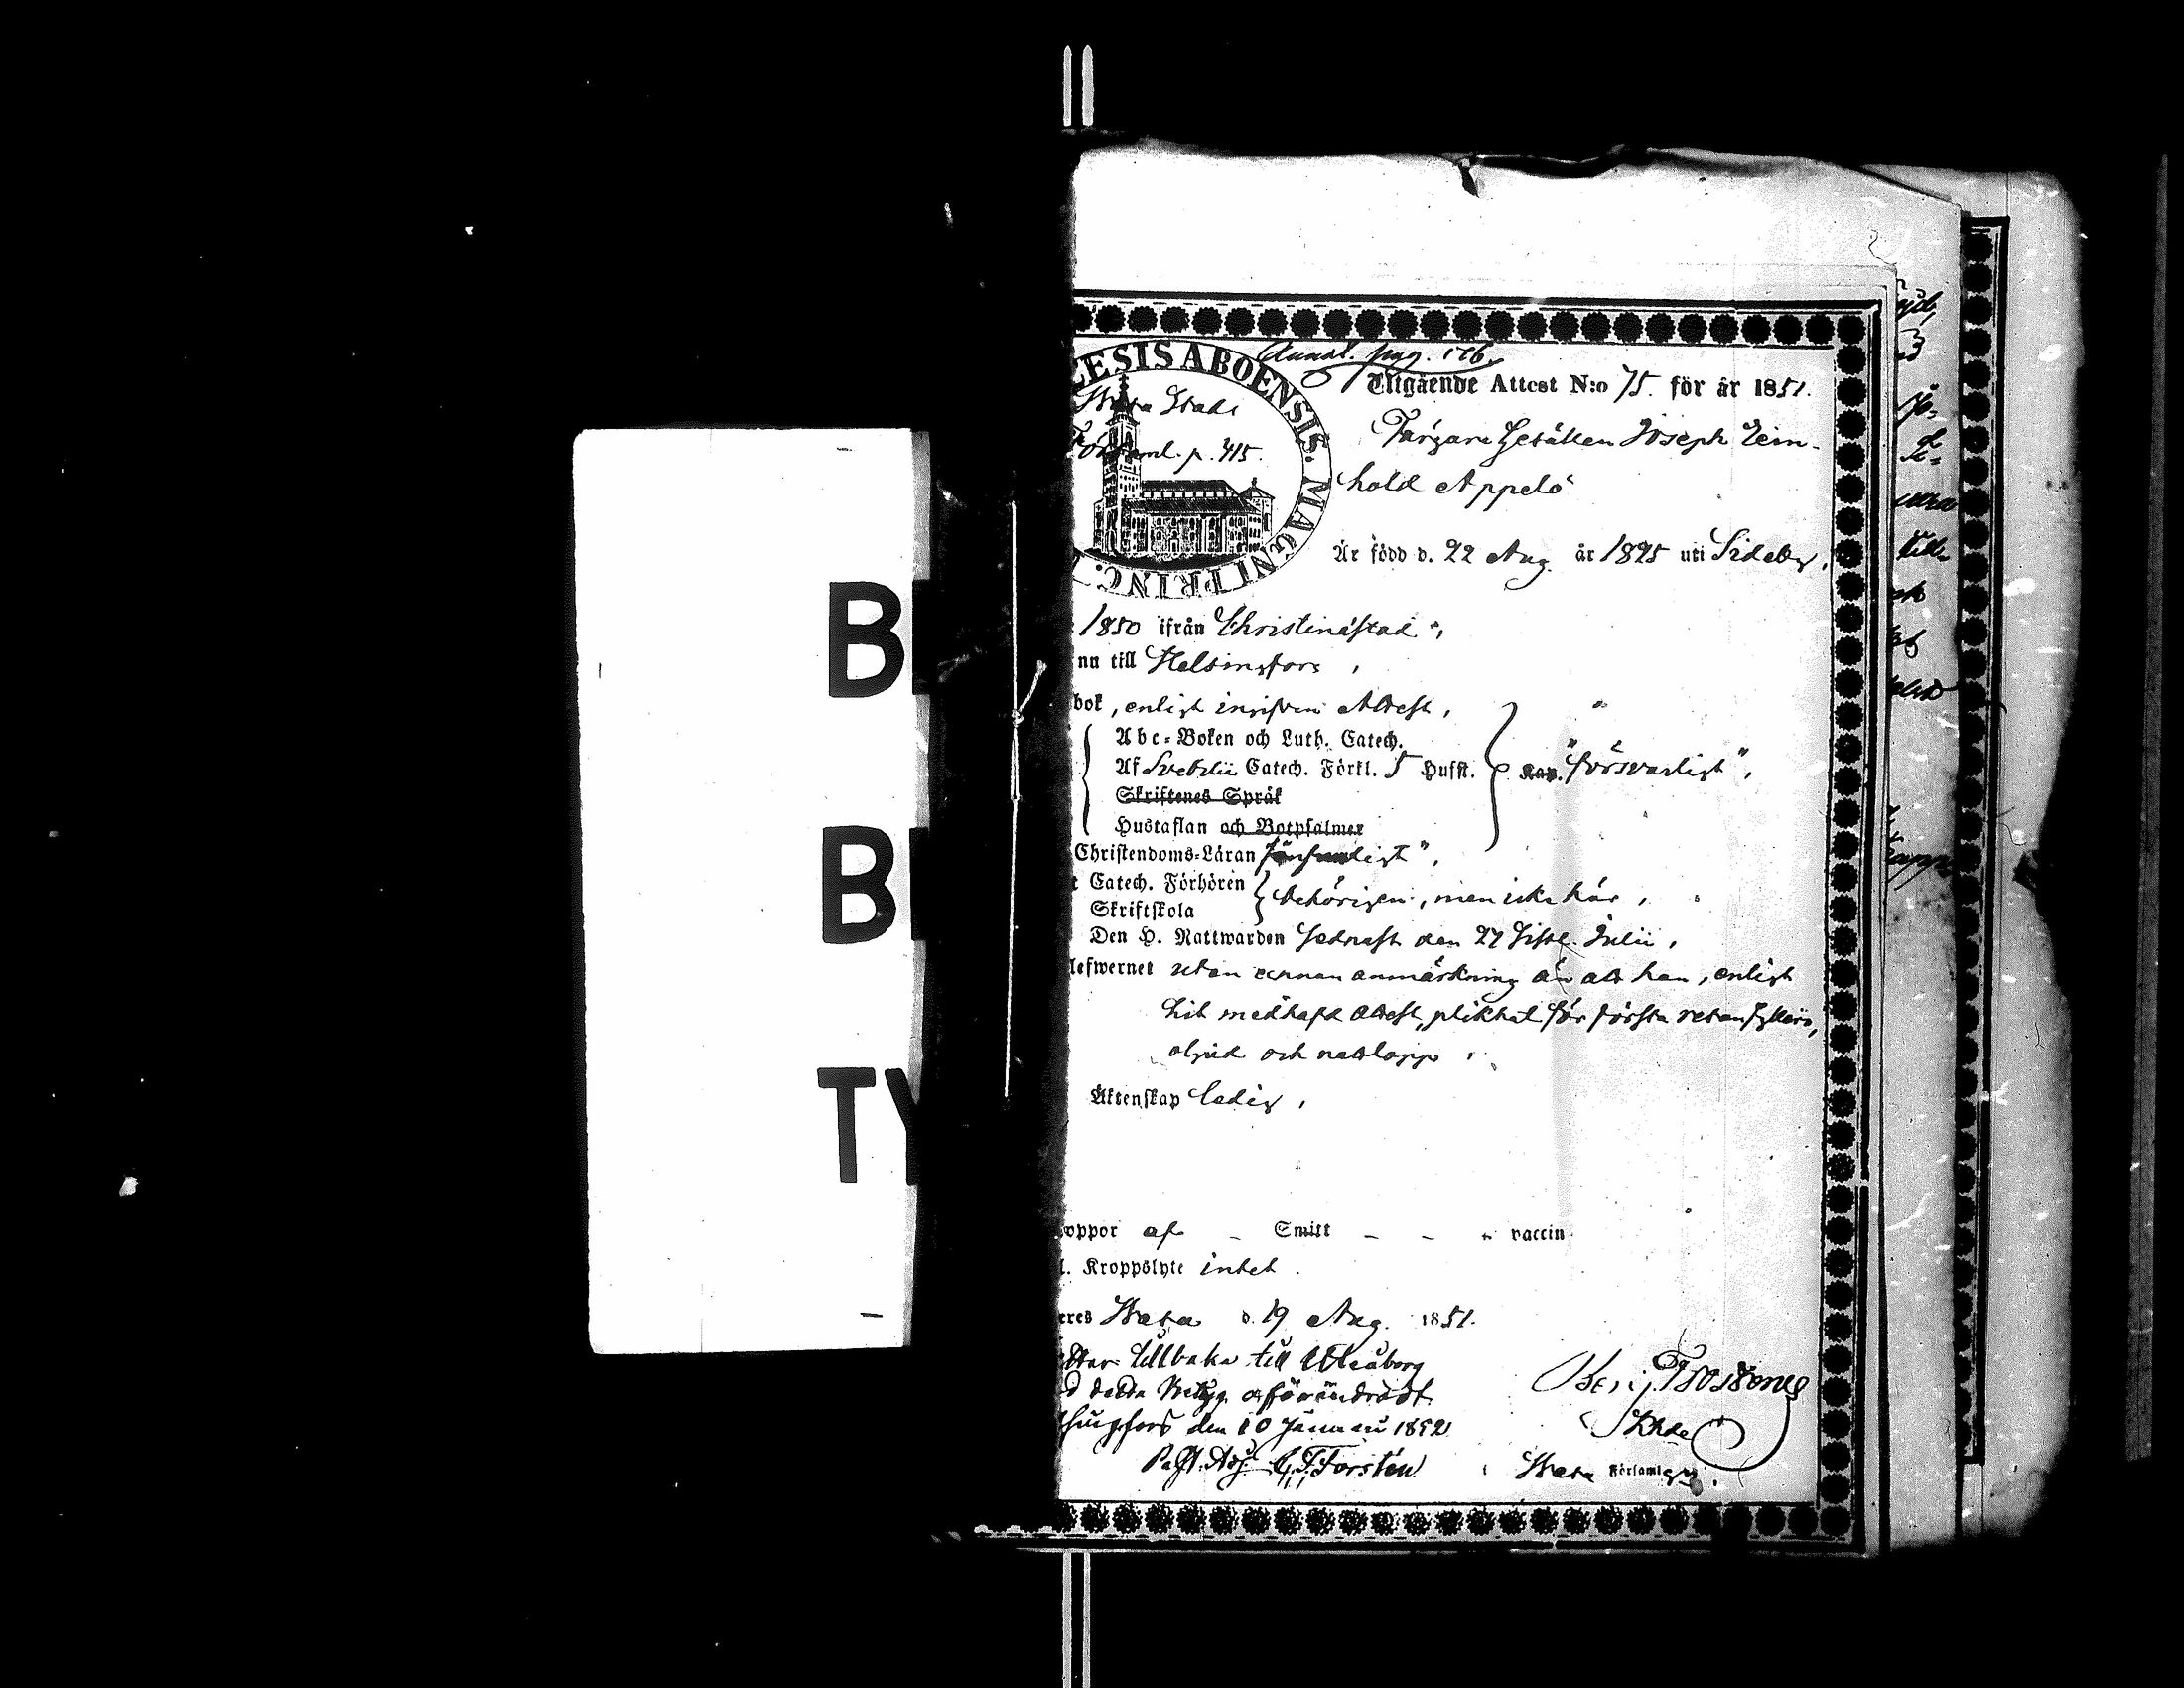 B
B
TY
Annot. pag. 176.
ESIS ABOENSIS. MAGNI PRINC.
Utgående Attest N:o 75. för år 1851.
Wasa Stads
Församl. p. 415.
Färgare Gesällen Joseph Rein-
hold Appelö
Är född d. 22 Aug. år 1825 uti Sideby,
1850 ifrån Christinestad",
nu till Helsingfors,
bok, enligt ingifven Attest,
Abc-Boken och Luth. Catech.
Af Svebilii Catech. Förkl. 5 Hufst. "försvarligt",
Skriftenes Språk
Hustaflan och Botpsalmer
Christendoms-Läran försvarligt",
Catech. Förhören
Skriftskola
behörigen, men icke här,
Den H. Nattwarden sednast den 27 sistl. Julii,
lefwernet utan annan anmärkning än att han, enligt
hit medhafd Attest, pliktat för första resan fylleri,
oljud och nattlopp,
Äktenskap ledig,
koppor af – Smitt – – vaccin
Kroppslyte intet.
eres Wasa d. 19 Aug. 1851.
tillbaka till Uleåborg
detta Betyg oförändradt.
singfors den 10 Januari 1852
Past. Adj. G. F. Forstén
Wasa Församling.